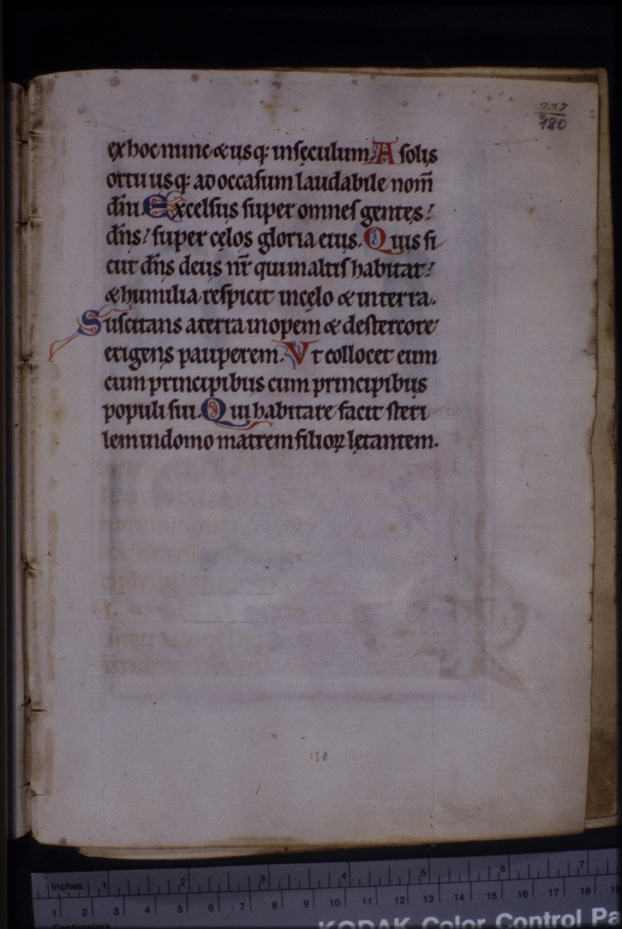 237
180
ex hoc nunc & usq; in sęculum; A solis
ortu usq; ad occasum laudabile nom̄
dn̄i. Excelsus super omnes gentes!
dn̄s! super cęlos gloria eius. Quis si
cut dn̄s deus nr̄ qui in altis habitat!
& humilia respicit in cęlo & in terra.
Suscitans a terra inopem & de stercore
erigens pauperem. Vt collocet eum
cum principibus cum principibus
populi sui. Qui habitare facit steri
lem in domo matrem filioꝝ lętantem.
180
Inches 1 2 3 4 5 6 7
1 2 3 4 5 6 7 8 9 10 11 12 13 14 15 16 17 18
Centimeters KODAK Color Control Pa